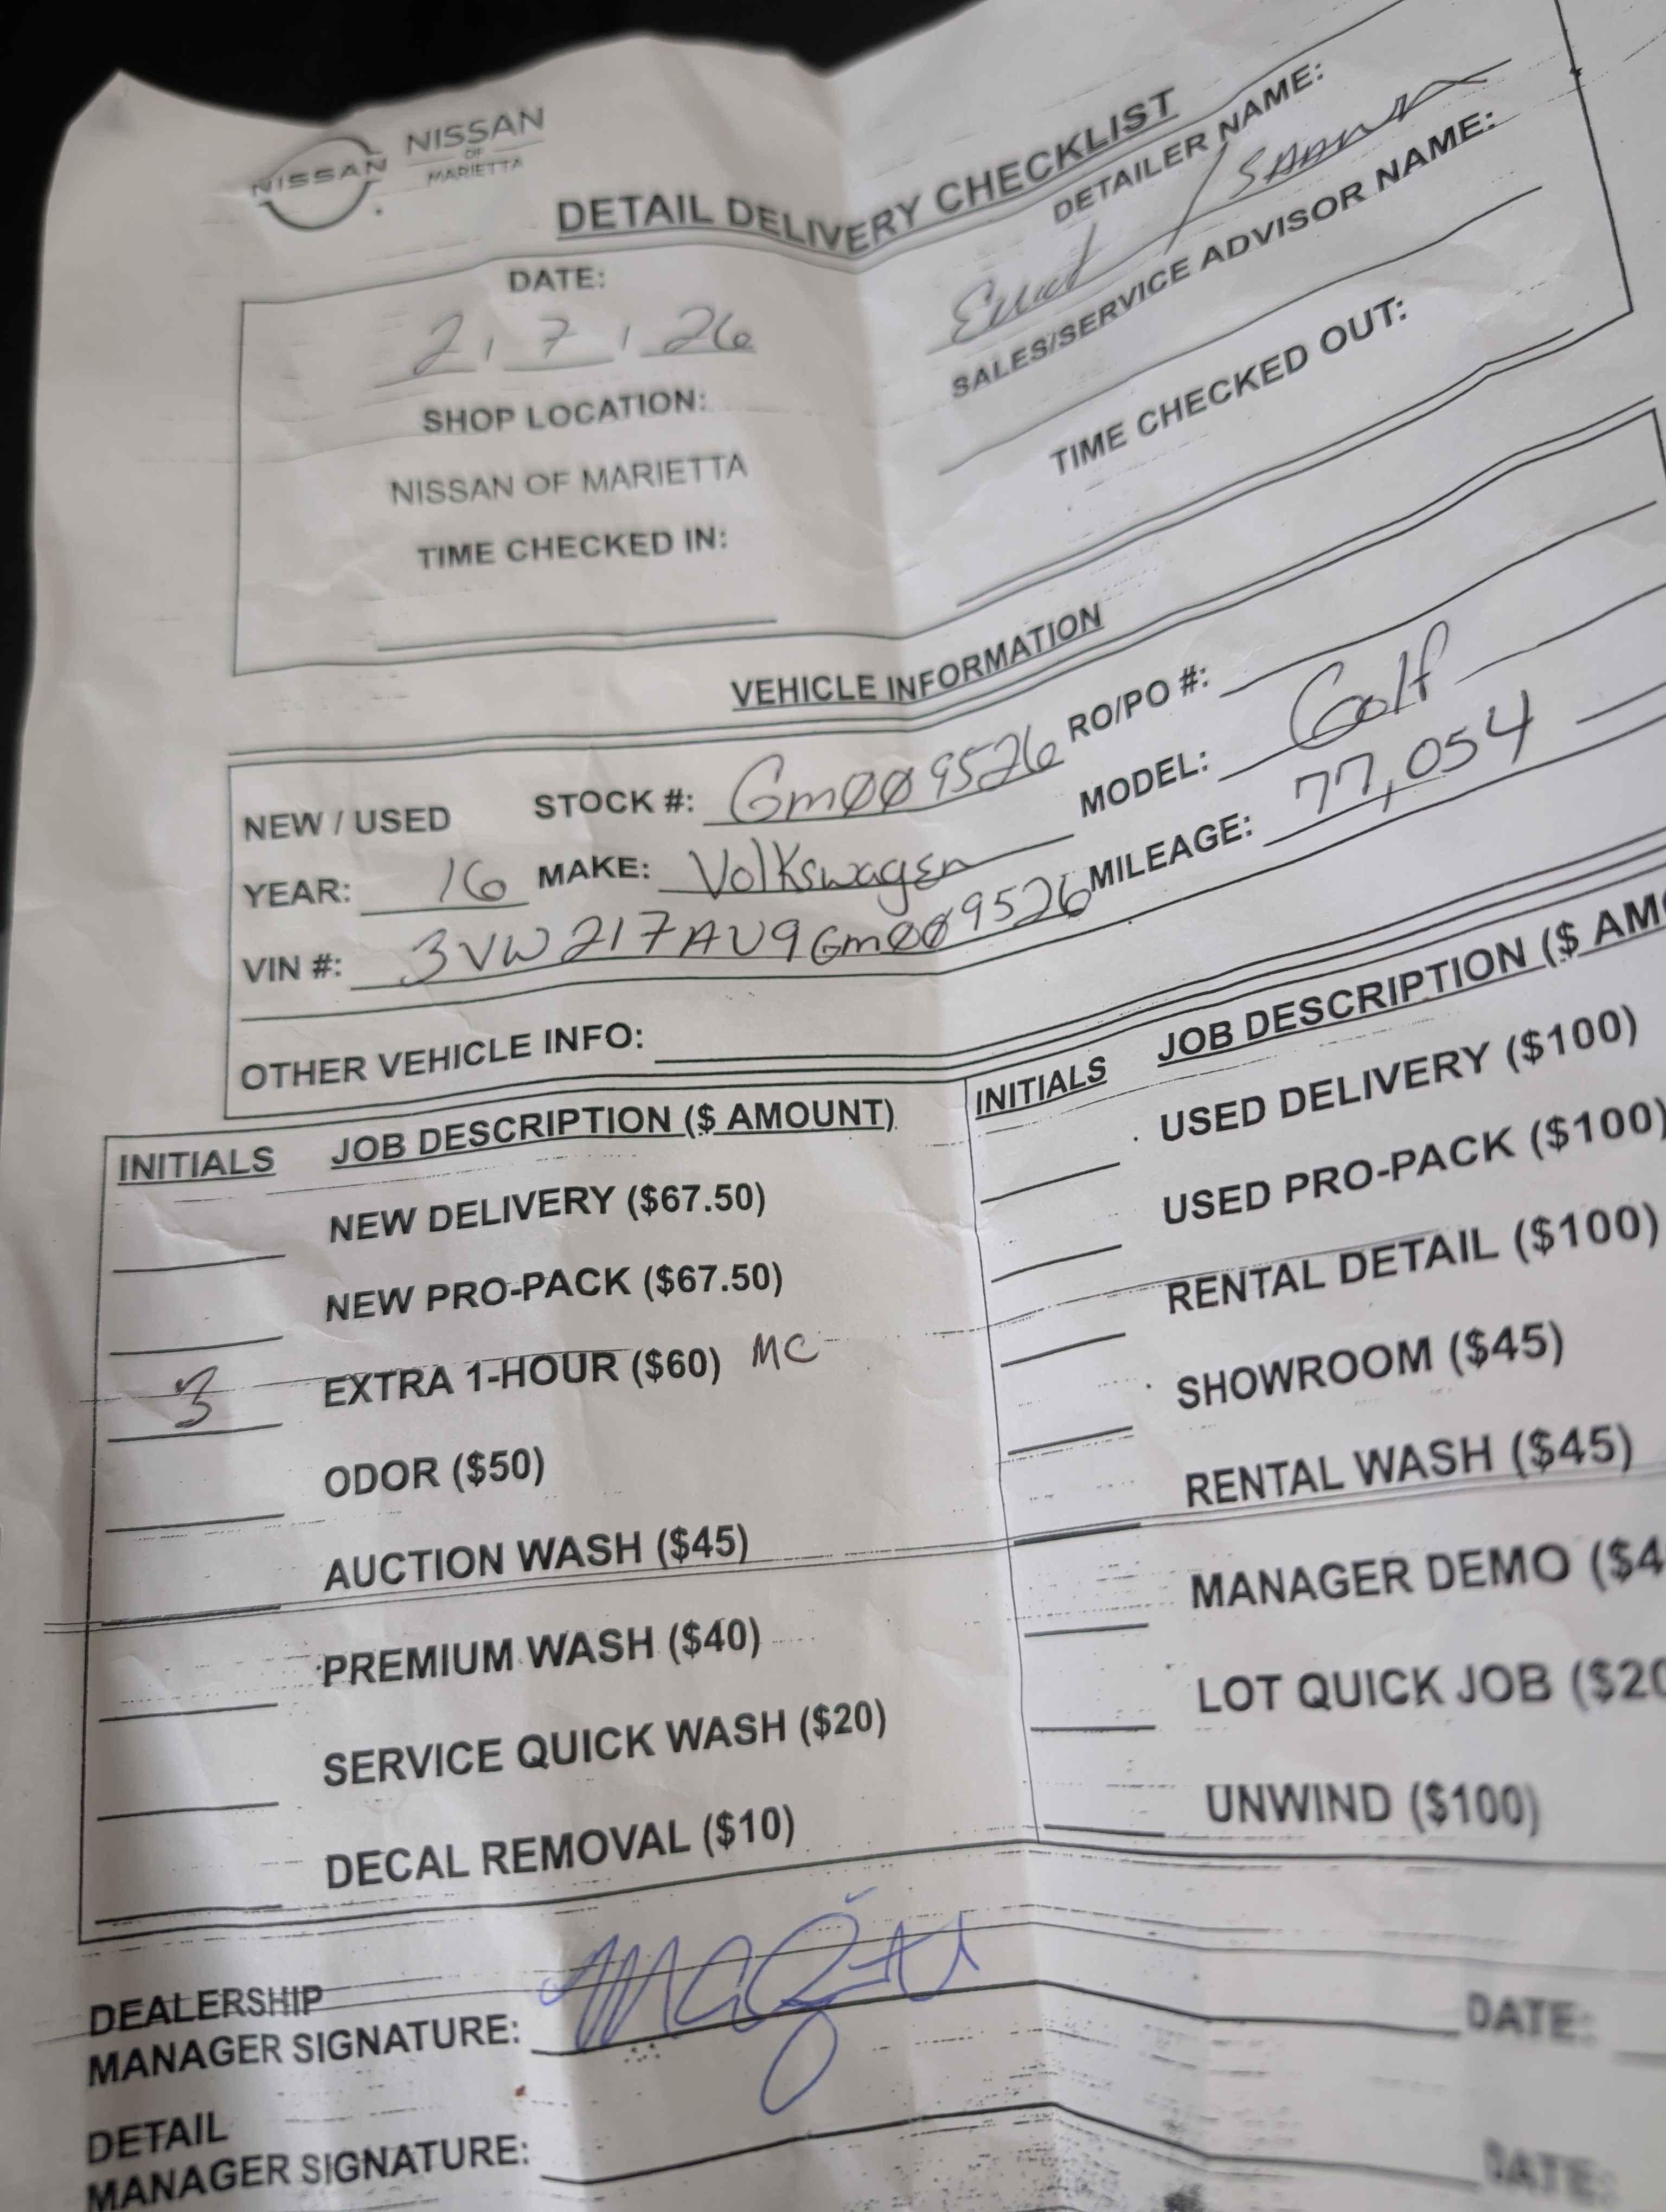 NISSAN NISSAN
OF
MARIETTA
DETAIL DELIVERY CHECKLIST
DATE:
2 , 7 , 26
SHOP LOCATION:
NISSAN OF MARIETTA
TIME CHECKED IN:
DETAILER NAME:
SALES/SERVICE ADVISOR NAME:
TIME CHECKED OUT:
VEHICLE INFORMATION
NEW / USED STOCK #: GM009526 RO/PO #:
YEAR: 16 MAKE: Volkswagen MODEL: Golf
VIN #: 3VW217AU9GM009526 MILEAGE: 77,054
OTHER VEHICLE INFO:
INITIALS JOB DESCRIPTION ($ AMOUNT)
NEW DELIVERY ($67.50)
NEW PRO-PACK ($67.50)
3 EXTRA 1-HOUR ($60) MC
ODOR ($50)
AUCTION WASH ($45)
PREMIUM WASH ($40)
SERVICE QUICK WASH ($20)
DECAL REMOVAL ($10)
INITIALS JOB DESCRIPTION ($ AMO
USED DELIVERY ($100)
USED PRO-PACK ($100)
RENTAL DETAIL ($100)
SHOWROOM ($45)
RENTAL WASH ($45)
MANAGER DEMO ($4
LOT QUICK JOB ($20
UNWIND ($100)
DEALERSHIP
MANAGER SIGNATURE: DATE:
DETAIL
MANAGER SIGNATURE: DATE: